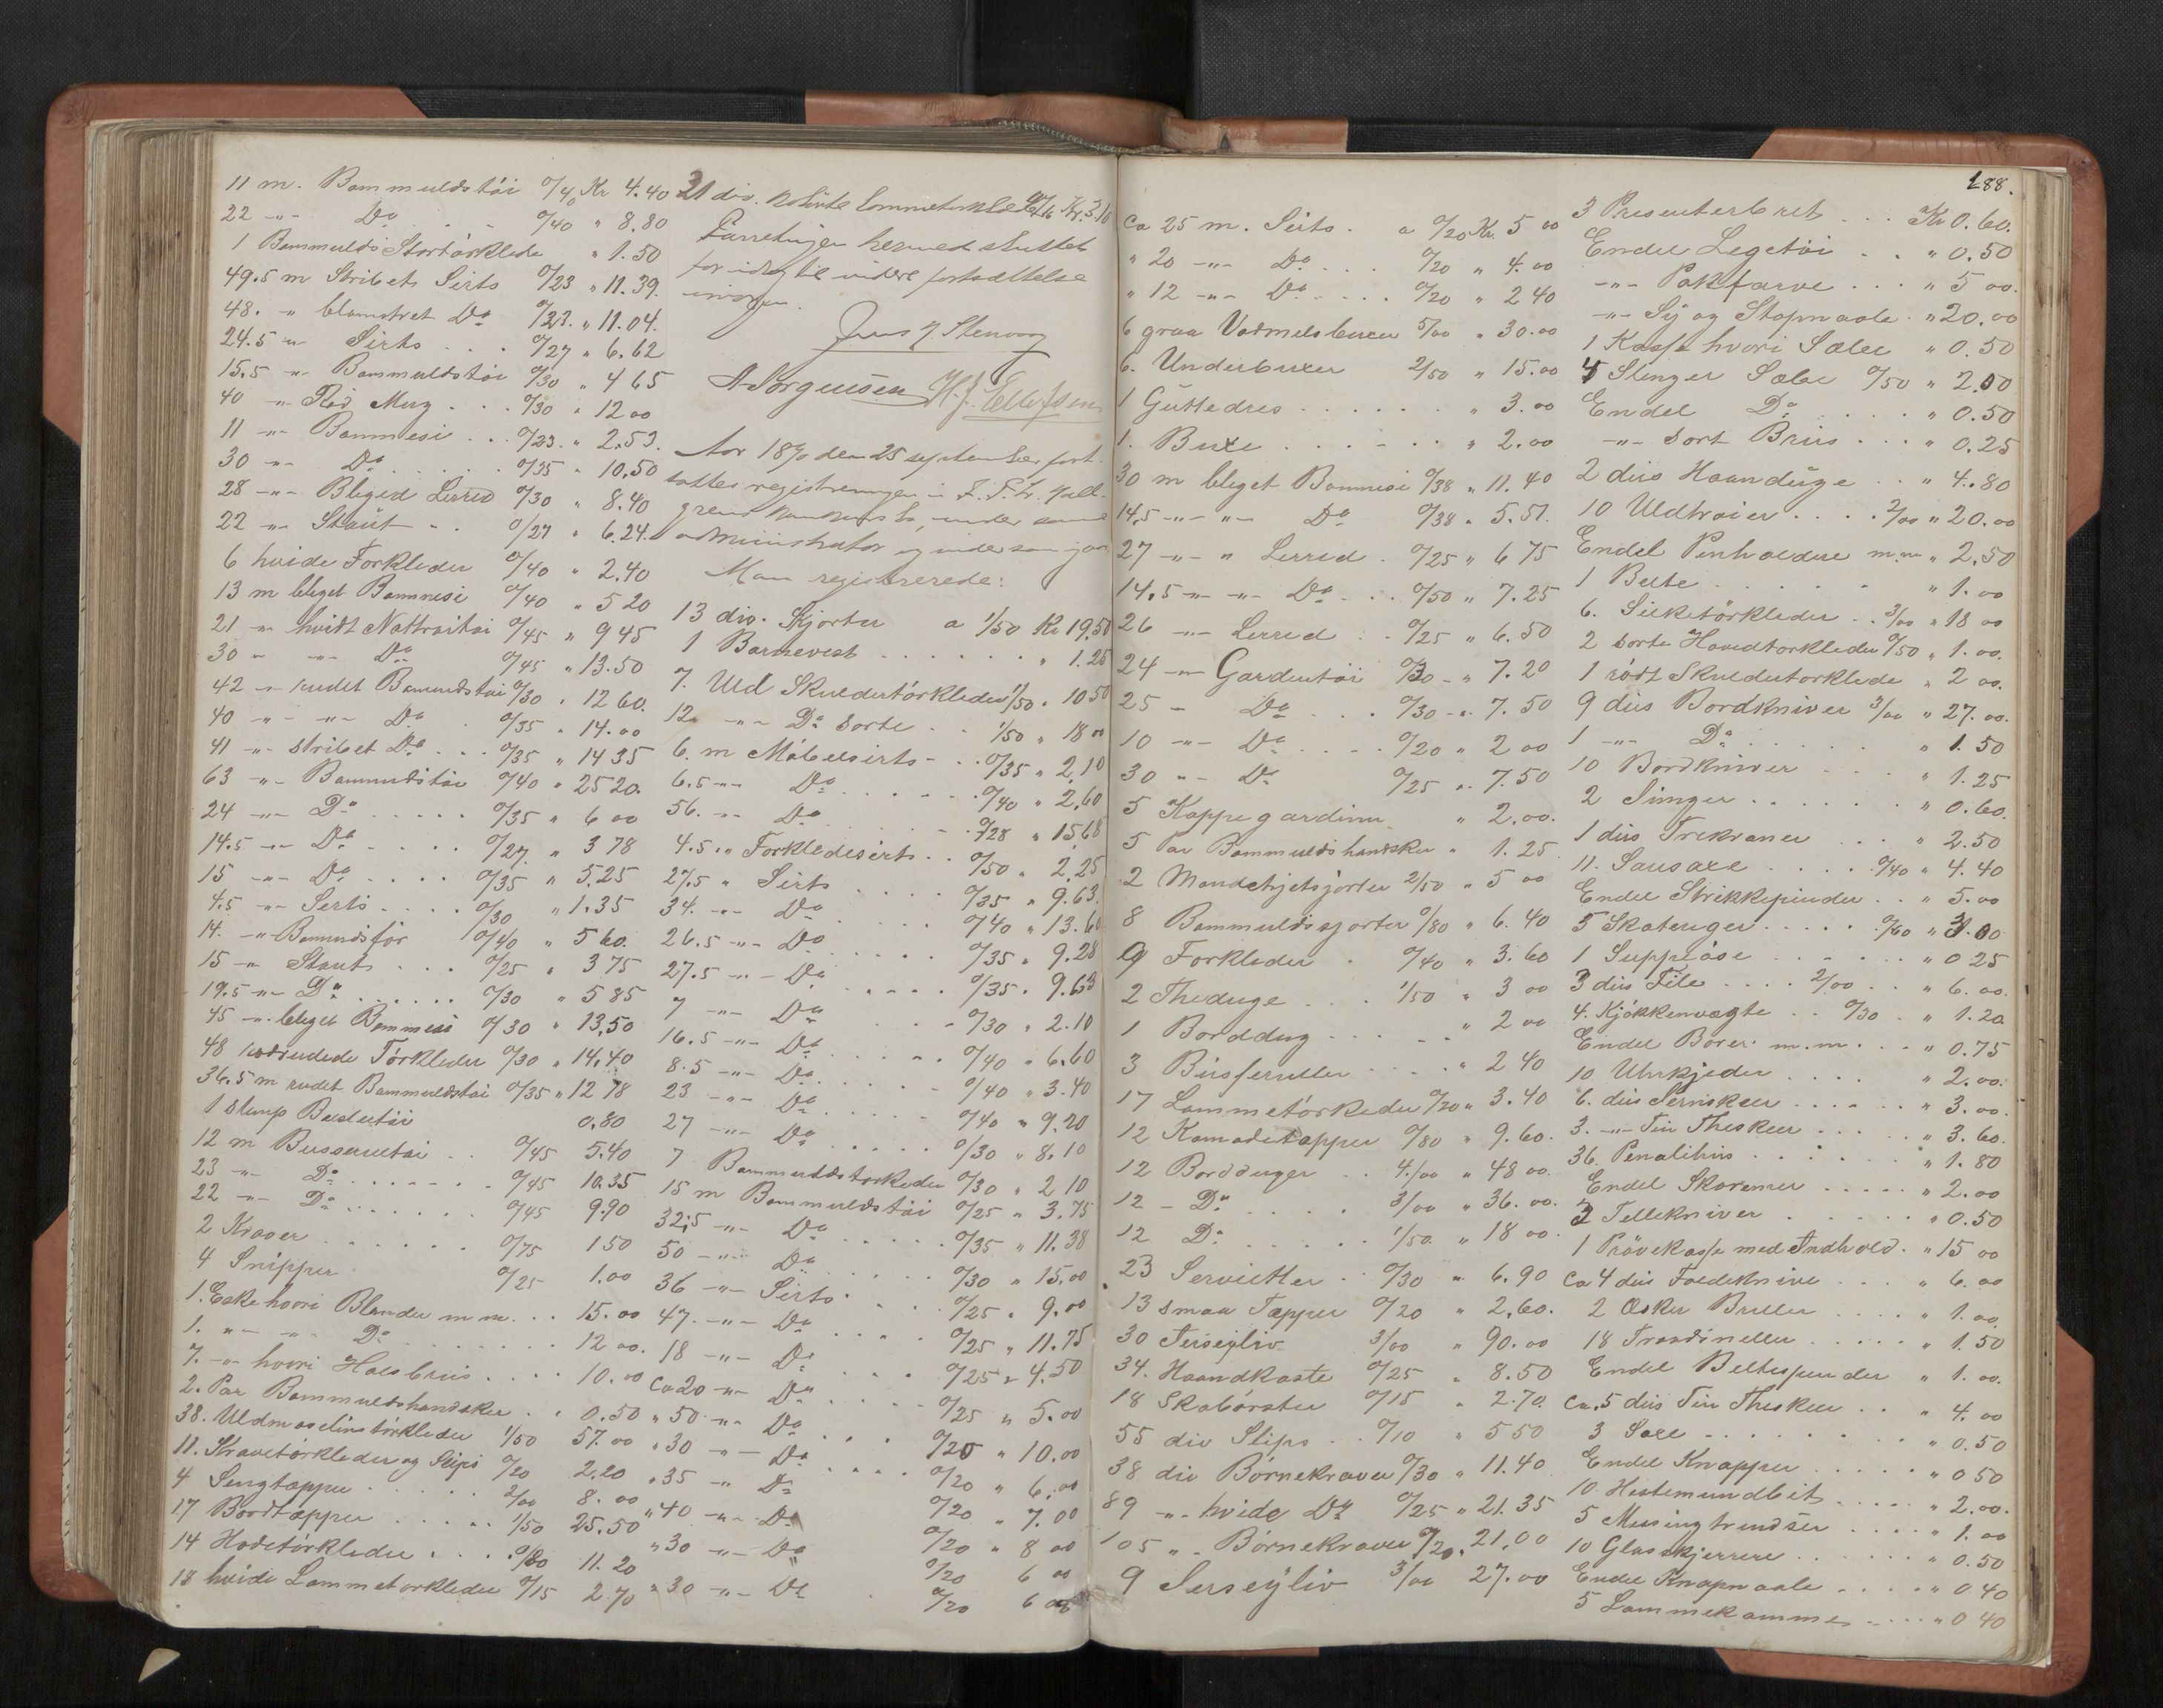 11 m. Bommuldstöi 0/40 Kr 4.40
22 -"- Do 0/40 " 8.80
1 Bommulds Stortörklede " 1.50
49.5 m Stribet Sirts 0/23 " 11.39.
48. -"- blomstret Do 0/23. " 11.04.
24.5 -"- Sirts . . . 0/27 " 6.62
15.5 -"- Bommuldstöi 0/30 " 4 65
40 -"- Rød . . . 0/30 " 12 00
11 -"- Bommesi . . . 0/23. " 2.53.
30 -"- Do . . . . . 0/35 " 10.50
28 -"- Bleged Lerred 0/30 " 8.40
22 -"- Stout . . 0/27 " 6.24.
6 hvide Forkleder 0/40 " 2.40
13 m bleget Bommesi 0/40 " 5 20
21 -"- hvidt Nattroitöi 0/45 " 9 45
30 -"- -"- Do 0/45 " 13.50
42 -"- rudet Bomuldstöi 0/30 " 12 60.
40 -"- -"- Do . 0/35 " 14.00
41 -"- stribet Do . . . 0/35 " 14 35
63 -"- Bomuldstöi 0/40 " 25 20.
24 -"- Do . . . . . 0/35 " 6 00
14.5 -"- Do . . . . . 0/27. " 3 78
15 -"- Do . . . . 0/35 " 5.25
4.5 -"- Serts . . . . 0/30 " 1.35
14. -"- Bomuldsför 0/40 " 5 60.
15 -"- Stout . . . 0/25 " 3 75
19.5 -"- Do . . . . . . 0/30 " 5 85
45 -"- bleget Bommesi 0/30 " 13.50
48 rødrudede Törkleder 0/30 " 14.40
36.5 m rudet Bommuldstöi 0/35 " 12 78
1 Stump 0.80
12 m Busserultöi . . 0/45 5.40
23 -"- Do . . . . . . 0/45 10.35
22 -"- Do . . . . . . 0/45 9.90
2 Kraver . . . . . . 0/75 1 50
4 Snipper 0/25 1.00
1. Eske hvori Blonder m m . . . 15.00
1. -"- -"- Do . . . . . . . . 12 00.
7. -"- hvori Halsbrus . . . . 10.00
2. Par Bommuldshandsker . . 0.50
38. Uldmoselinstörkleder 1/50 57.00
11. Kravetörkleder og Slips 0/20 2.20
4 Sengtæpper . . . . . 2/00 8.00
17 Bordtæpper . . . . . 1/50 25.50
14 Hodetörkleder . . . 0/80 11.20
18 hvide Lommetorkleder 0/15 2.70
21 div. kolörte Lommetorkleder Kr. 3.16
Forretningen hermed sluttet
for idag til videre fortsættelse
imorgen.
Jens J. Stenvog
A Jørgensen H. J. Ellefsen
Aar 1890 den 25 september fort-
sattes registreringen i
grens konkursbo, under samme
administrator og vidner som igaar
Man registrerede:
13 div. Skjorter a 1/50 Kr 19.50
1 Barnevest . . . . . . . " 1.25
7. Uld Skuldertörkleder 1/50 " 10 50
12 -"- Do sorte . . 1/50 " 18 00
6. m Möbelsirts - . . 0/35 " 2.10
6.5 -"- Do . . . . . . 0/40 " 2.60
56. -"- Do . . . . . . 0/28 " 15.68
4.5 -"- Forkledesirts . . 0/50 " 2.25
27.5 " Sirts . . . . 0/35 " 9.63.
34. -"- Do . . . . . 0/40 " 13.60
26.5 -"- Do . . . . 0/35 " 9.28
27.5 -"- Do . . . . . 0/35 " 9.63
7 -"- Do . . . . 0/30 " 2.10
16.5 -"- Do . . . . . 0/40 " 6.60
8.5 -"- Do . . . . . 0/40 " 3.40
23 -"- Do . . . . . 0/40 " 9.20
27 -"- Do . . . . . 0/30 " 8.10
7 Bommuldstorkleder 0/30 " 2 10
15 m Bommuldstöi 0/25 " 3.75
32.5 -"- Do . . . . . 0/35 " 11.38
50 -"- Do . . . . . . 0/30 " 15.00
36 -"- Sirts . . . . 0/25 " 9.00
47. -"- Do . . . . 0/25 " 11.75
18 -"- Do . . . . 0/25 " 4.50
Ca 20 -"- Do . . . . 0/25 " 5.00
" 50 -"- Do . . . . 0/20 " 10.00
" 30 -"- Do . . . . 0/20 " 6.00
" 35 -"- Do 0/20 " 7.00
" 40 -"- Do 0/20 " 8 00
" 30 -"- Do 0/20 6 00
" 30 -"- Do . 0/20 6 00
188.
Ca 25 m. Sirts . a 0/20 Kr. 5 00
" 20 -"- Do . . . 0/20 " 4.00
" 12 -"- Do . . . . 0/20 " 2 40
6 graa Vadmelsbuxer 5/00 " 30.00
6. Underbuxer 2/50 " 15.00
1 Guttedres . . . . . . " 3.00
1. Buxe . . . . . . . " 2.00
30 m bleget Bommesi 0/38 " 11.40
14.5 -"- -"- Do 0/38 " 5.51.
27 -"- " Lerred . 0/25 " 6 75
14.5 -"- -"- Do . . . 0/50 " 7.25
26 -"- Lerred . . 0/25 " 6.50
24 -"- Gardentöi 0/30 - " 7.20
25 - Do . . . 0/30 - " 7.50
10 -"- Do . . . . 0/20 " 2 00
30 -"- Do 0/25 " 7.50
5 Kappegardiner " 2.00.
5 Par Bommuldshandsker " 1.25
2 Mandchetsjorter 2/50 " 5 00
8 Bommuldssjorter 0/80 " 6.40
9 Forkleder . 0/40 " 3.60
2 Theduge . . . 1/50 " 3 00
1 Borddug . . . . . " 2 00
3 . . . . " 2 40
17 Lommetörkleder 0/20 " 3.40
12 Komodetæpper 0/80 " 9.60.
12 Bordduger . . 4/00 " 48 00.
12 - Do . . . . . 3/00 " 36.00.
12 Do . . . . . . 1/50. " 18 00.
23 Servietter . . 0/30 " 6.90
13 smaa Tæpper 0/20 " 2.60.
30 Terseyliv 3/00 " 90.00
34. Haandkoste 0/25 " 8.50
18 Skobørster 0/15 " 2.70.
55 div Slips . . 0/10 " 5 50
38 div Børnekraver 0/30 " 11.40
89 -"- hvide Do 0/25 " 21.35
105 " - Børnekraver 0/20 " 21.00
9 Serseyliv 3/00 27.00
3 Presenterbret . . . Kr 0.60.
Endel Legetöi . . " 0.50
-"- Pakfarve . . . " 5 00.
-"- Sy og Stopnaale . " 20.00
1 Kasse hvori Sæler " 0.50
4 Slenger Sæler 0/50 " 2.00
Endel Do . . . . " 0.50
-"- Sort Brus . . . " 0.25
2 dus Haanduge . . " 4.80
10 Uldtroier . . . . 2/00 " 20.00
Endel Penholdere m.m " 2.50
1 Belte . . . . . . " 1.00
6. Silketörkleder . . 3/00 " 18 00
2 sorte Hovedtorkleder 0/50 " 1.00.
1 rödt Skuldertorklede " 2 00.
9 dus Bordkniver 3/00 " 27.00.
1 -"- Do . . . . . . " 1.50
10 Bordkniver . . . " 1.25
2 . . . . . . . " 0.60.
1 dus Trekraner . . . " 2.50
11. Sausaxe . . . . 0/40 " 4.40
Endel Strikkepinder . . " 5.00
5 . . . . . 0/60 " 3.00
1 Suppeöse . . . . . . " 0 25
3 dus File . . . . 2/00 . . " 6.00.
4. Kjökkenvægte . . 0/30 . " 1.20
Endel Borer. m.m. . . . " 0.75
10 Uhrkjeder . . . . " 2.00.
6. dus . . . . . " 3.00.
3. -"- Tin Theskeer . . . . . " 3.60.
36. Penalihus . . . . . . " 1.80
Endel Skoremer . . . . . " 2.00
2 Tellekniver . . . . . . " 0.50
1 Prövekasse med Indhold . " 15 00
Ca 4 dus Foldeknive . . . . " 6.00
2 Æsker Briller . . . . " 1.00
18 . . . . . " 1.50
Endel Beltespender " 1.00.
Ca. 5 dus Tin Theskeer . . " 4.00
3 Saxe . . . . . . . . " 0.50
Endel Knapper . . . . . " 0 50
10 Hestemundbit . . . . " 2.00.
5 Messingtrendser . . . . " 1.00
10 Glasskjerrere . . . . . . " 0.50
Endel Knapnaale . . . . " 0 40
5 Lommekamme . . . . . " 0 40